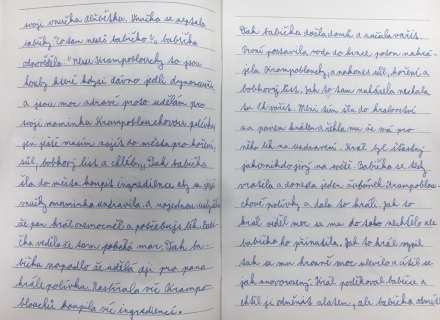 svoji vnučku Alžbětku. Vnučka se zeptala
babičky "Co tam neseš babičko?", babička
odpověděla: "Nesu Krampoblouchy to jsou
houby které kdysi dávno jedli dinosauři
a jsou moc zdravé proto udělám pro
svoji maminku Krampoblouchovou polévku,
jen ještě musím zajít do města pro koření,
sůl, bobkový list a chléb". Tak babička
šla do města koupit ingredience aby se její
vnučky maminka uzdravila a najednou
že pan král onemocněl a potřebuje lék. Babi-
čka věděla že tam pobíhá mor. Tak ba-
bičku napadlo že udělá i pro pana
krále polívku. Nasbírala víc Krampo-
blouchů koupila víc ingrediencí.
Tak babička došla domů a začala vařit.
První postavila vodu do hrnce potom nakrá-
jela Krampoblouchy, a nakonec sůl, koření a
bobkový list. Jak to tam naházela nechala
to tři vařit. Mezi tím šla do království
za panem králem a řekla mu že má pro
něho lék na uzdravení. Král byl šťastný
jako nikdo jiný na světě. Babička se tedy
vrátila a donesla jeden Krampoblou-
chové polívky a dala to králi. Jak to
král viděl moc se mu do toho nechtělo ale
babička ho přinutila. Jak to král vypil
tak se mu hrozně moc ulevilo a cítil se
jak znovuzrozený. Král poděkoval babičce a
chtěl ji odměnit zlatem, ale babička